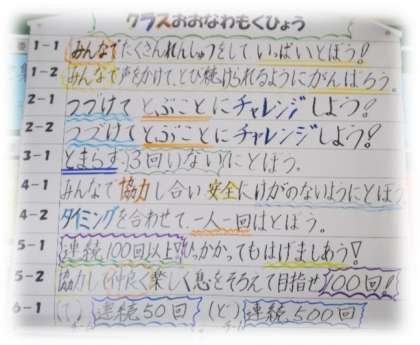 クラスおおなわもくひょう
1-1 みんなでたくさんれんしゅうをして いっぱいとぼう!
1-2 みんなで声をかけて、とび続けられるようにがんばろう。
2-1 つづけて とぶことにチャレンジしよう!
2-2 つづけて とぶことにチャレンジしよう!
3-1 とまらず(3回いない)にとぼう。
4-1 みんなで協力し合い 安全にけがのないようにとぼう
4-2 タイミングを合わせて、一人一回はとぼう。
5-1 連続100回以上!!ひっかかってもはげましあう!
5-2 協力して仲良く楽しく息をそろえて目指せ100回!
6-1 (て) 連続50回 (と) 連続500回